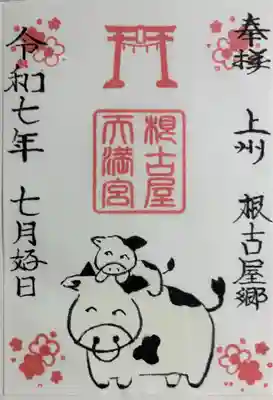 奉拝
上州 根古屋郷
根古屋
天満宮
令和七年 七月好日